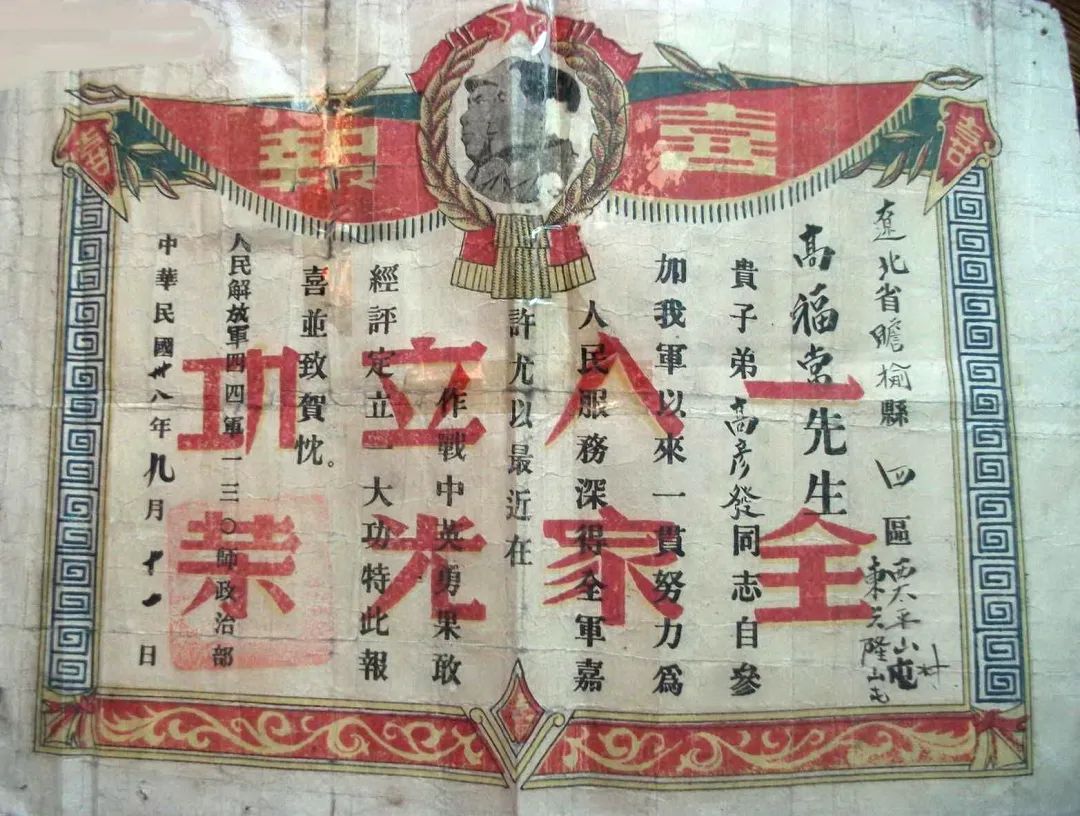 喜報
遼北省瞻榆縣 四 區 西太平山屯村
東興隆山屯
高福常先生
貴子弟高彥發同志自參
加我軍以來一貫努力爲
人民服務深得全軍嘉
許尤以最近在
作戰中英勇果敢
經評定立一大功特此報
喜並致賀忱。
人民解放軍四四軍一三〇師政治部
中華民國卅八年九月十一日
一人立功
全家光榮
喜
喜
喜